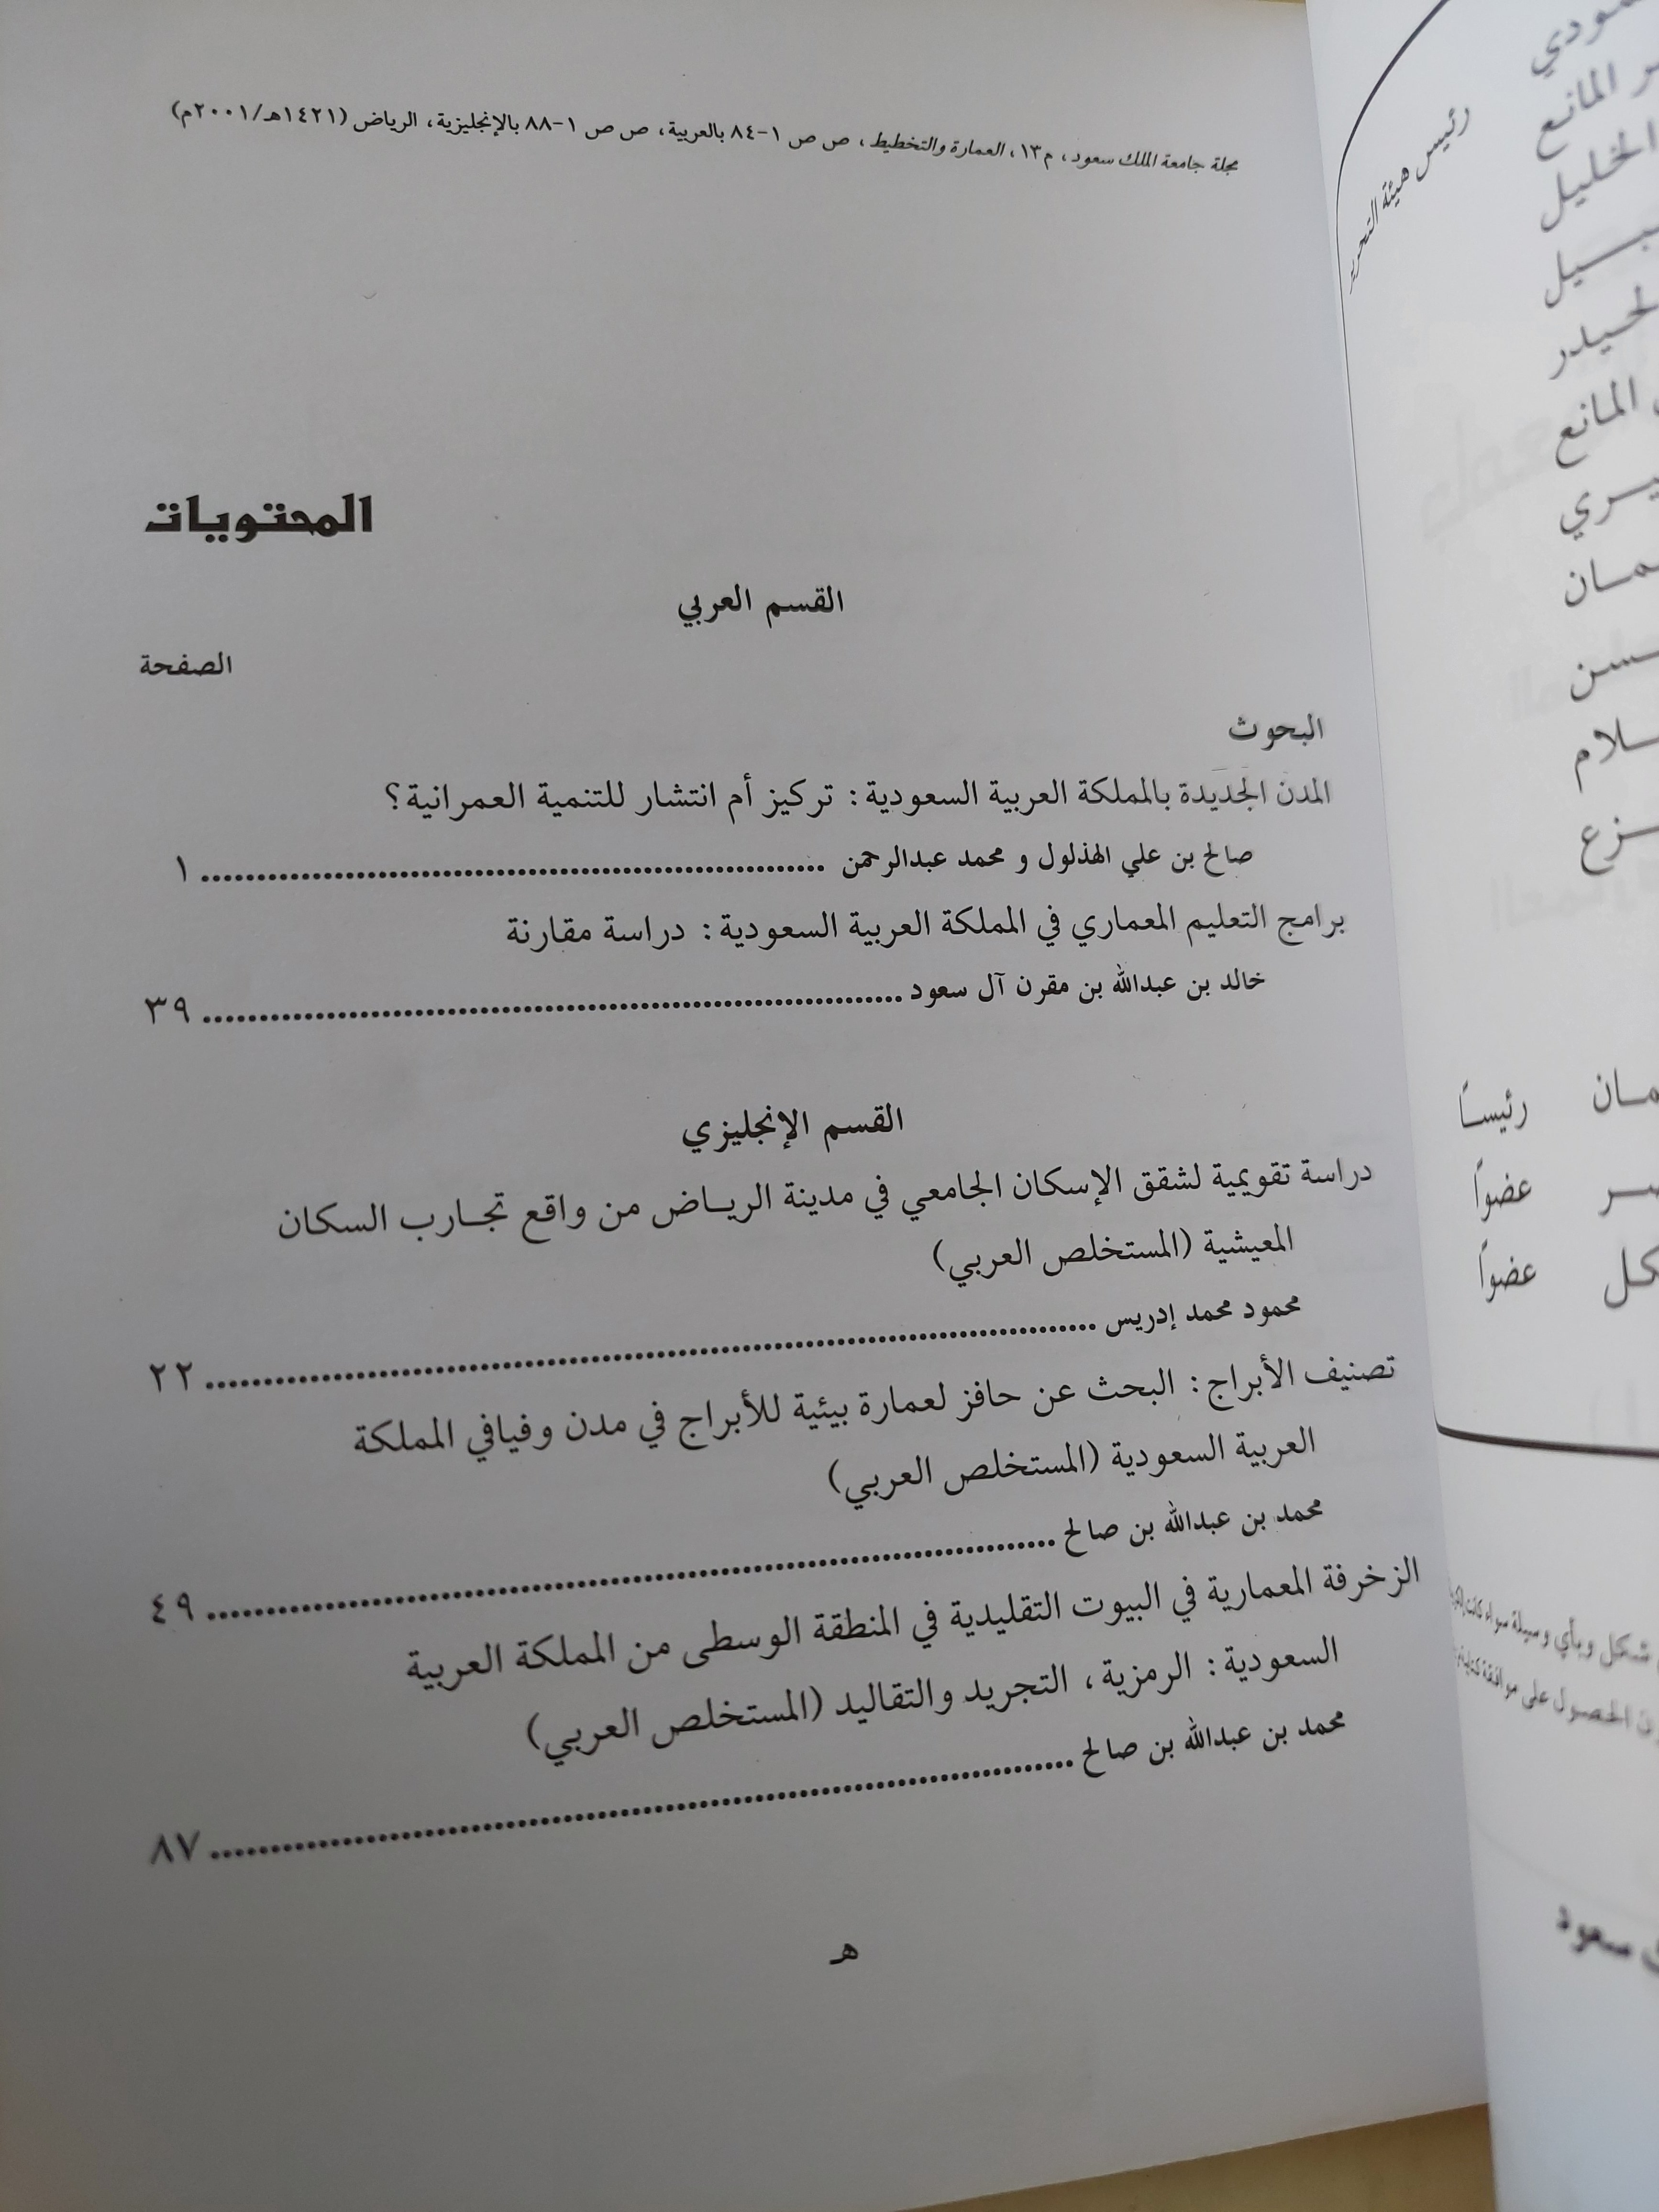 مجلة جامعة الملك سعود، م١٣، العمارة والتخطيط، ص ص ١-٨٤ بالعربية، ص ص ١-٨٨ بالإنجليزية، الرياض (١٤٢١هـ/٢٠٠١م)
المحتويات
القسم العربي
الصفحة
البحوث
المدن الجديدة بالمملكة العربية السعودية: تركيز أم انتشار للتنمية العمرانية؟
صالح بن علي الهذلول و محمد عبدالرحمن ........ ١
برامج التعليم المعماري في المملكة العربية السعودية: دراسة مقارنة
خالد بن عبدالله بن مقرن آل سعود ........ ٣٩
القسم الإنجليزي
دراسة تقويمية لشقق الإسكان الجامعي في مدينة الرياض من واقع تجارب السكان
المعيشية (المستخلص العربي)
محمود محمد إدريس ........ ٢٢
تصنيف الأبراج: البحث عن حافز لعمارة بيئية للأبراج في مدن وفيافي المملكة
العربية السعودية (المستخلص العربي)
محمد بن عبدالله بن صالح ........ ٤٩
الزخرفة المعمارية في البيوت التقليدية في المنطقة الوسطى من المملكة العربية
السعودية: الرمزية، التجريد والتقاليد (المستخلص العربي)
محمد بن عبدالله بن صالح ........ ٨٧
هـ
رئيس هيئة
المانع
الخليل
المانع
رئيسًا
عضوًا
عضوًا
شكل وبأي وسيلة سواء
الحصول على موافقة
سعود